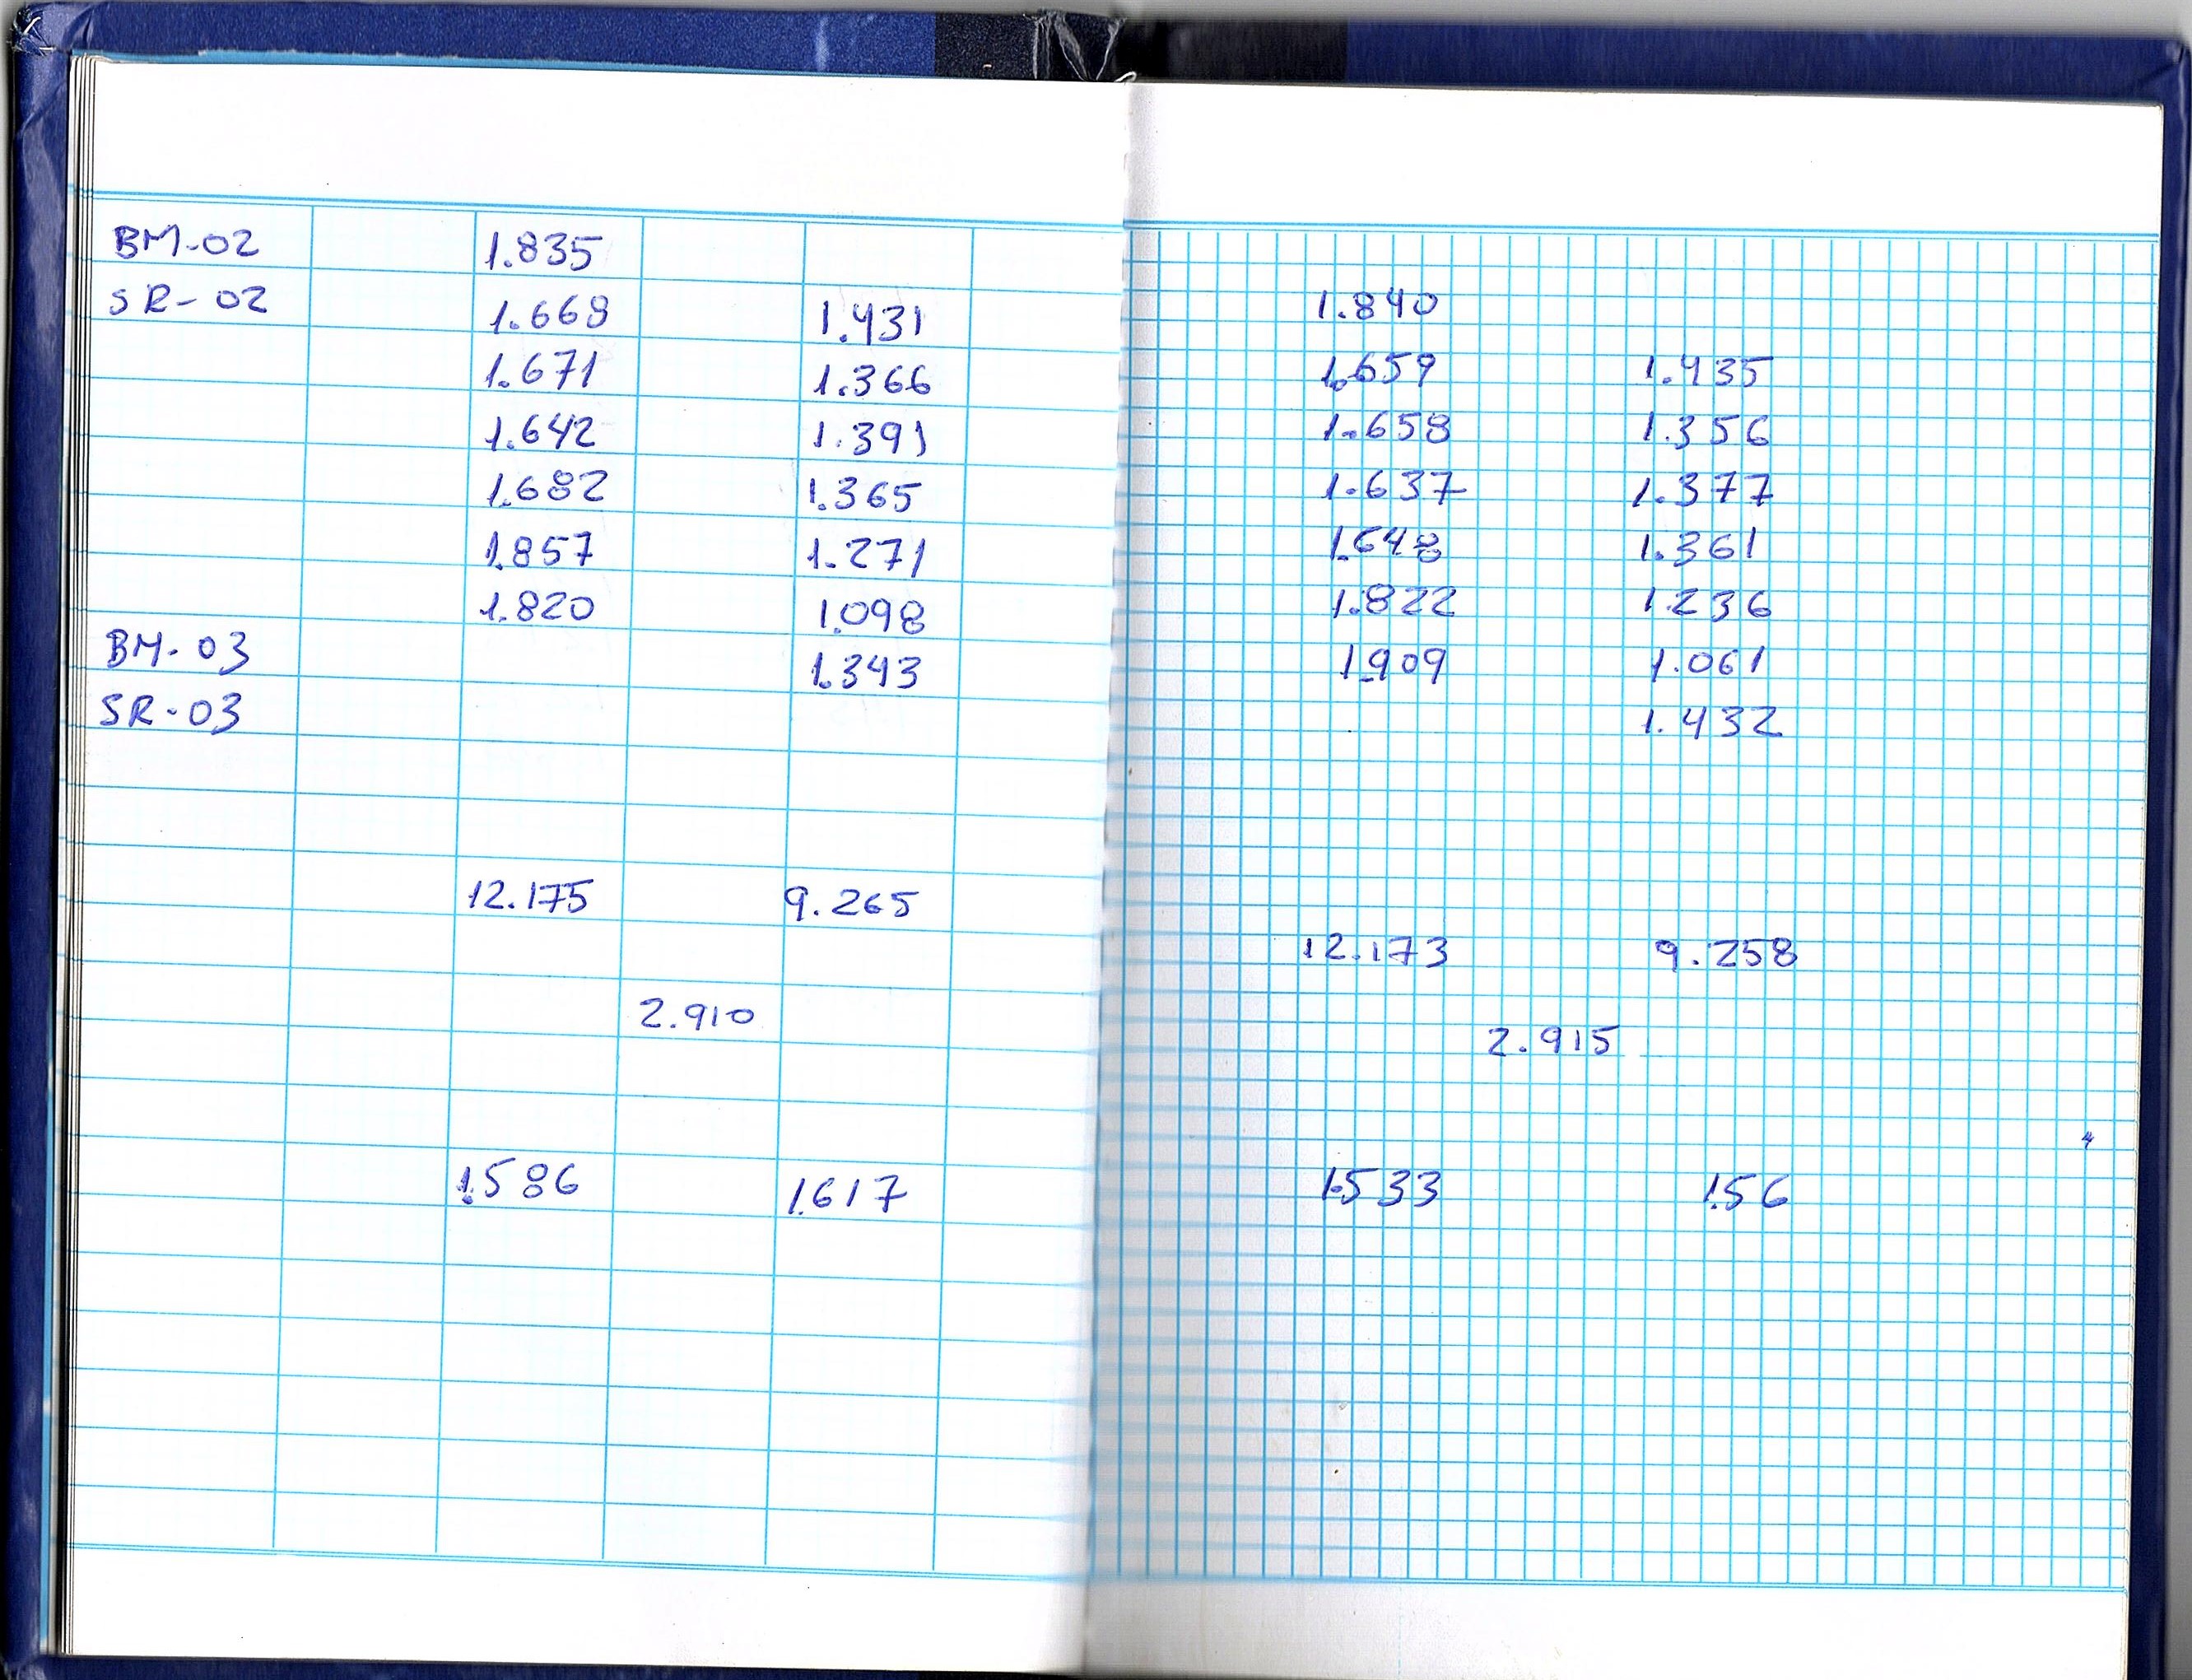 BM-02 1.835
SR-02 1.668 1.431
1.671 1.366
1.642 1.391
1.682 1.365
1.857 1.271
1.820 1.098
BM-03 1.343
SR-03
12.175 9.265
2.910
1.586 1.617
1.840
1.659 1.435
1.658 1.356
1.637 1.377
1.648 1.361
1.822 1.236
1.909 1.061
1.432
12.173 9.258
2.915
1.533 1.56